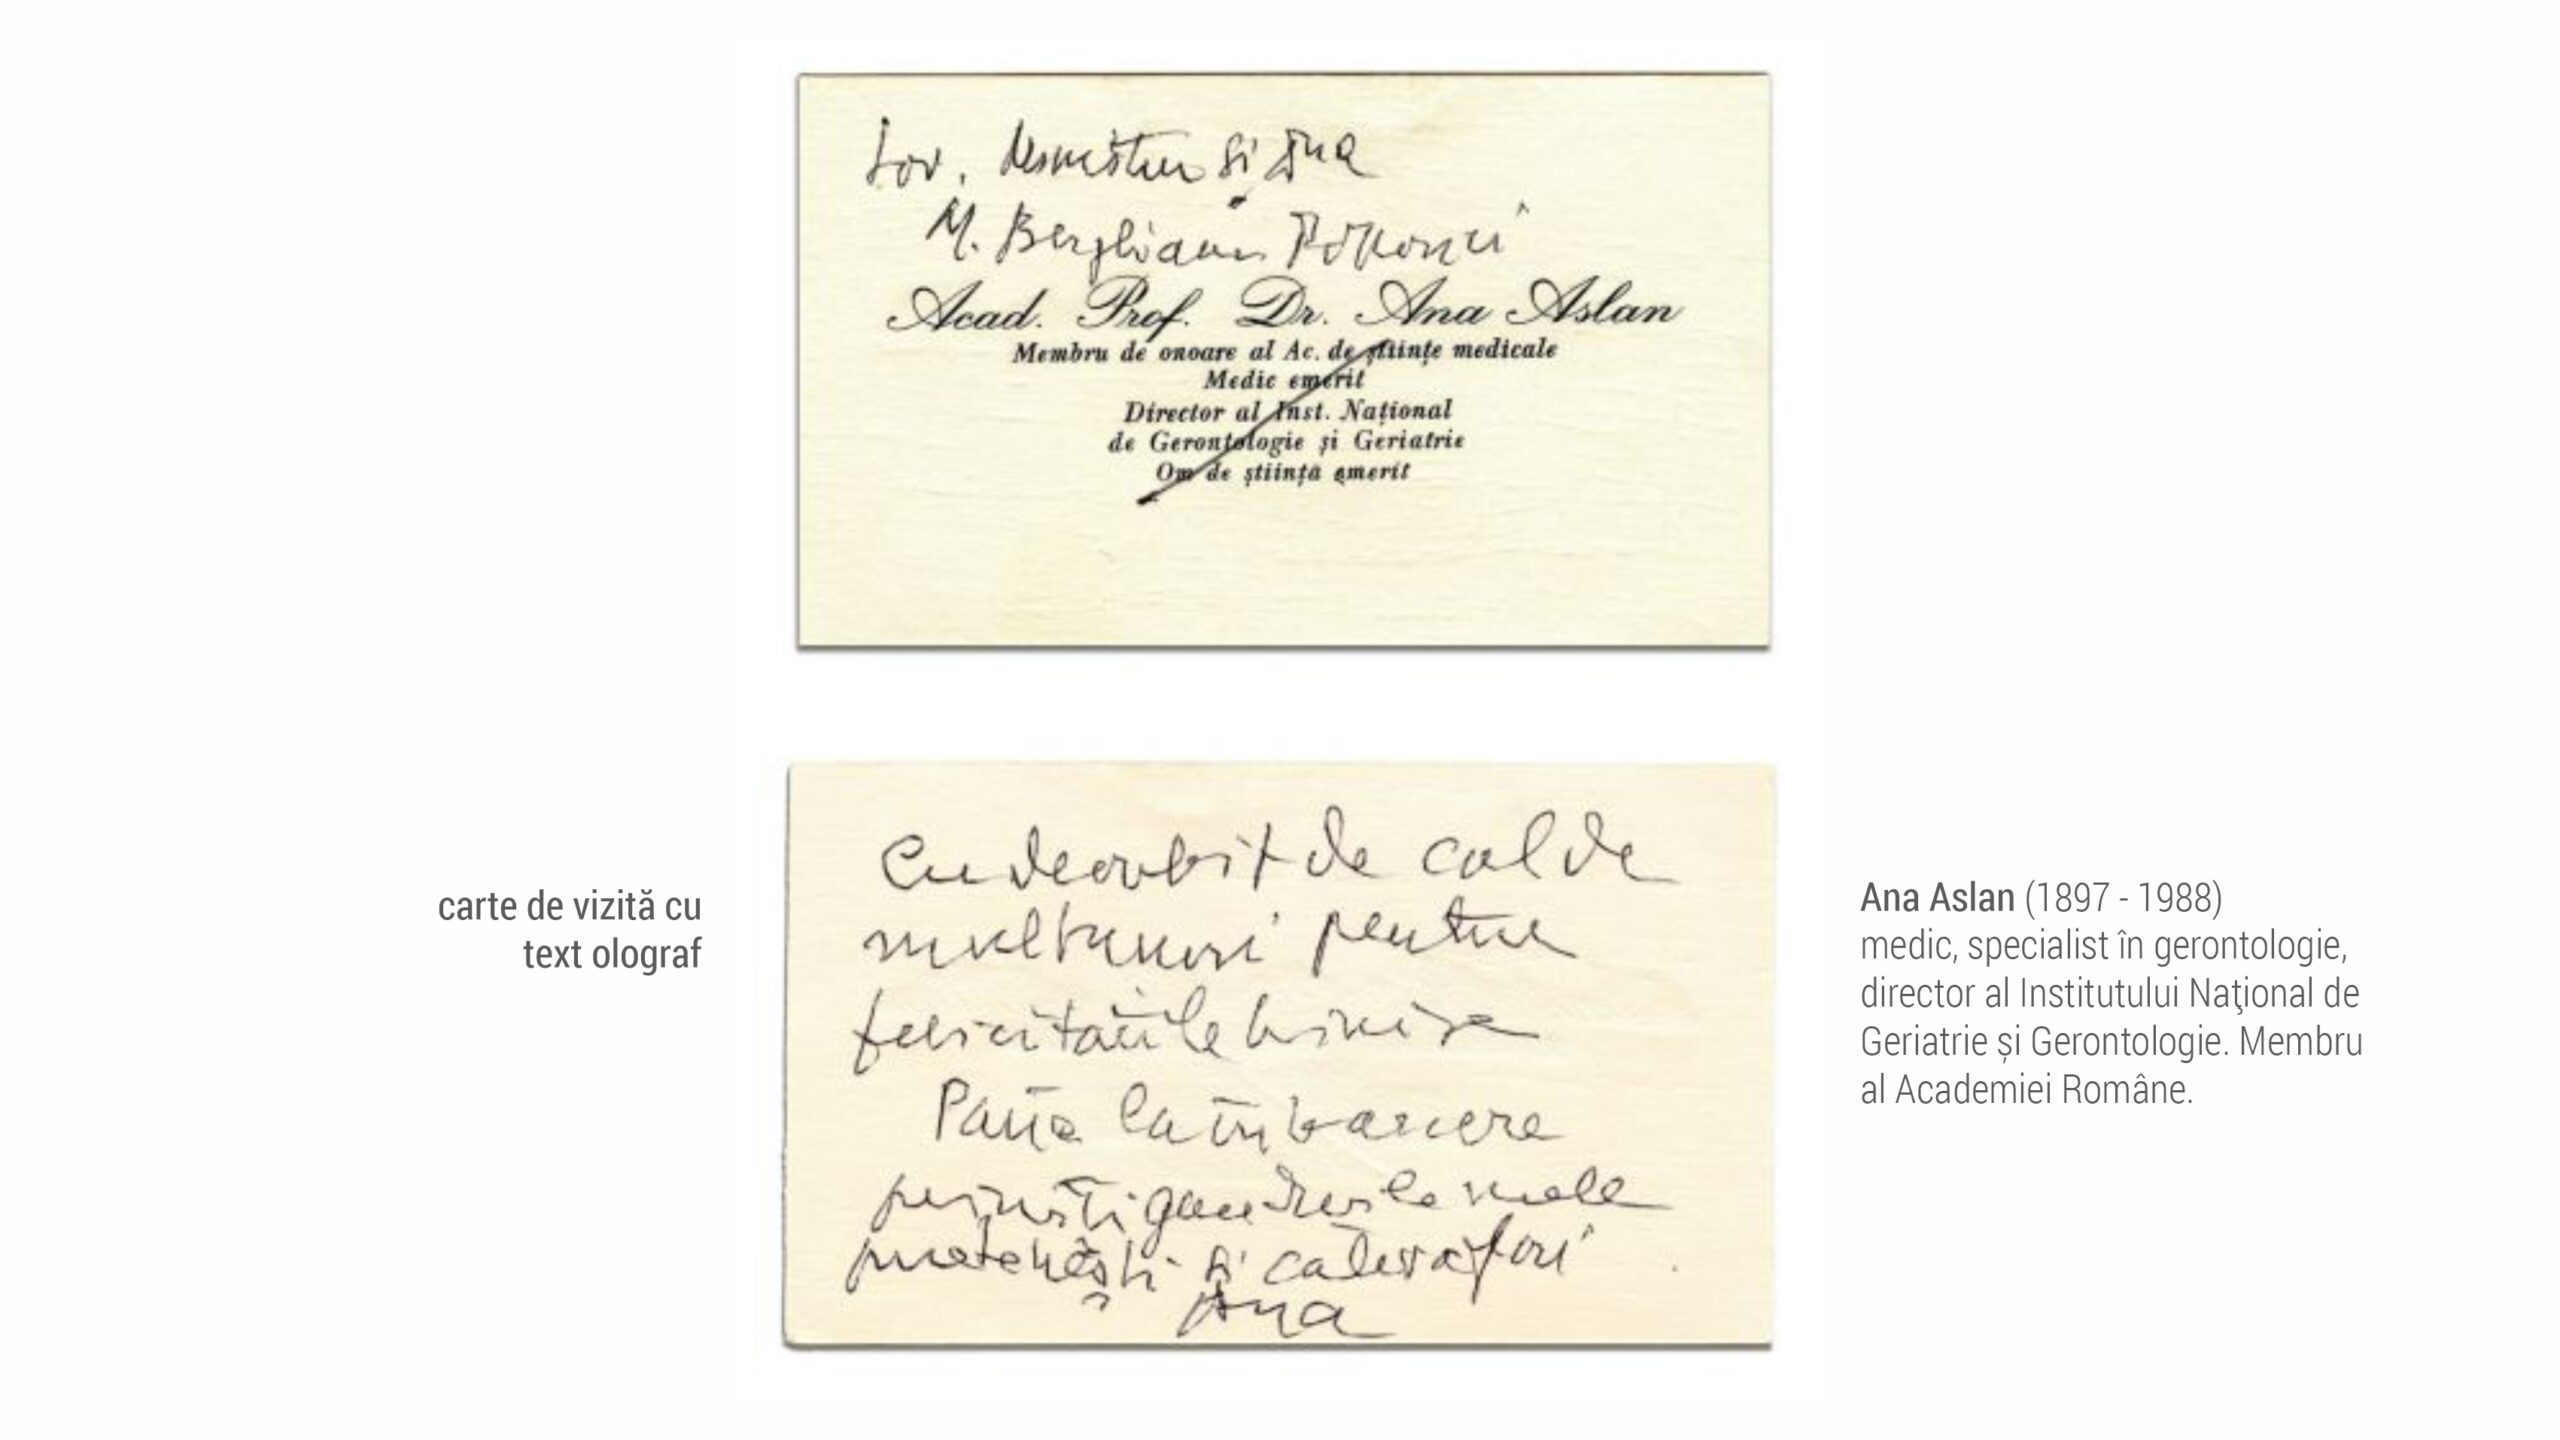 Tov. Demostene și Ana
M. Berghianu
Acad. Prof. Dr. Ana Aslan
Membru de onoare al Ac. de științe medicale
Medic emerit
Director al Inst. Național
de Gerontologie și Geriatrie
Om de știință emerit
carte de vizită cu
text olograf
Cu deosebit de calde
mulțumiri pentru
felicitările trimise
Până la
primiți gândurile mele
prietenești și
Ana
Ana Aslan (1897 - 1988)
medic, specialist în gerontologie,
director al Institutului Naţional de
Geriatrie și Gerontologie. Membru
al Academiei Române.